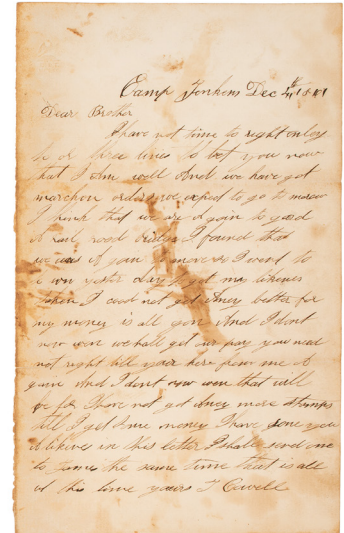 Camp Jenkens Dec
Dear Brother
I have not time to right onley
or three lines to let you now
that I am well And we have got
marchen orders we exped to go to morow
I think that we are a goin to gard
a rail road bridge I found that
we was a goin to move so I went to
town yester day to get my likenes
taken I cood not get eney better for
my money is all gon And I dont
now wen we shall get our pay you need
not right till your here from me a
gain And I dont now wen that will
be for I have not got eney more stamps
till I get some money I have sone you
a likenes in this letter I shall send one
to James the same time that is all
at this time yours